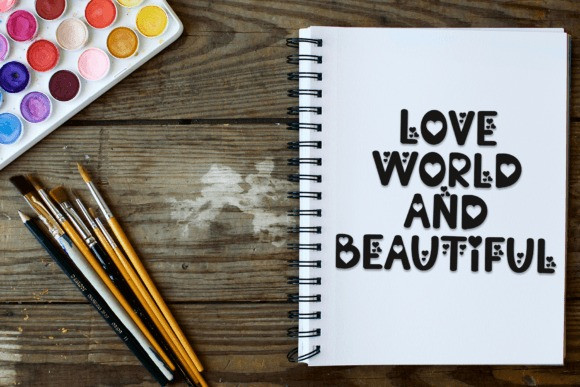 LOVE
WORLD
AND
BEAUTIFUL